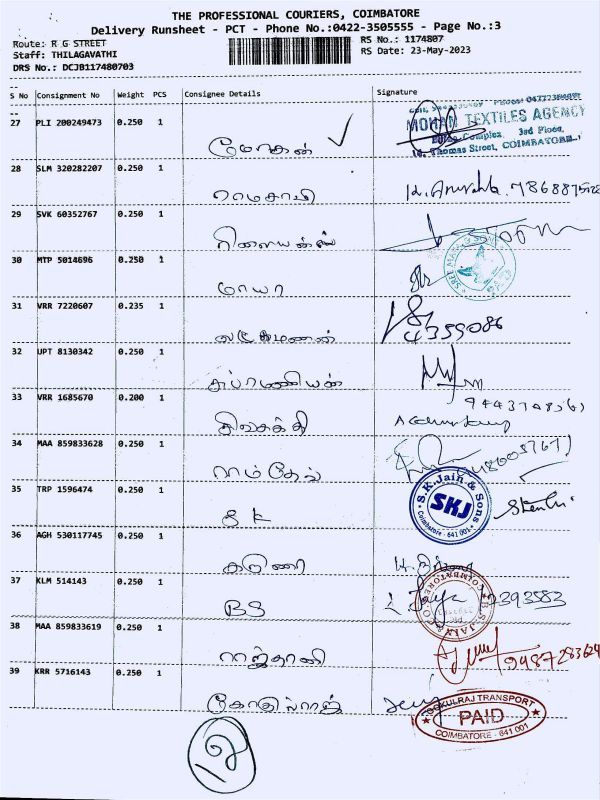 THE PROFESSIONAL COURIERS, COIMBATORE
Delivery Runsheet - PCT - Phone No.:0422-3505555 - Page No.:3
Route: R G STREET
RS No.: 1174807
Staff: THILAGAVATHI
RS Date: 23-May-2023
DRS No.: DCJB117480703
S No Consignment No Weight PCS Consignee Details Signature
27 PLI 200249473 0.250 1 மோகன்
MOHAN TEXTILES AGENCY
Complex, 3rd Floor,
Thomas Street, COIMBATORE
28 SLM 320282207 0.250 1 ராமசாமி
29 SVK 60352767 0.250 1
30 MTP 5014696 0.250 1 மாயா
31 VRR 7220607 0.235 1 லட்சுமணன் 4359086
32 UPT 8130342 0.250 1 சுப்ரமணியன்
33 VRR 1685670 0.200 1 சிவசக்தி
34 MAA 859833628 0.250 1 ராம்தேவ்
35 TRP 1596474 0.250 1 SK
S.K. Jain & Sons
SKJ
Coimbatore - 641 001
36 AGH 530117745 0.250 1 கருணா
37 KLM 514143 0.250 1 BS 2393583
B.S. JAIN & CO
COIMBATORE
38 MAA 859833619 0.250 1 ராஜ்தானி 9487283624
39 KRR 5716143 0.250 1 கோகுல்ராஜ்
GOKULRAJ TRANSPORT
PAID
COIMBATORE - 641 001